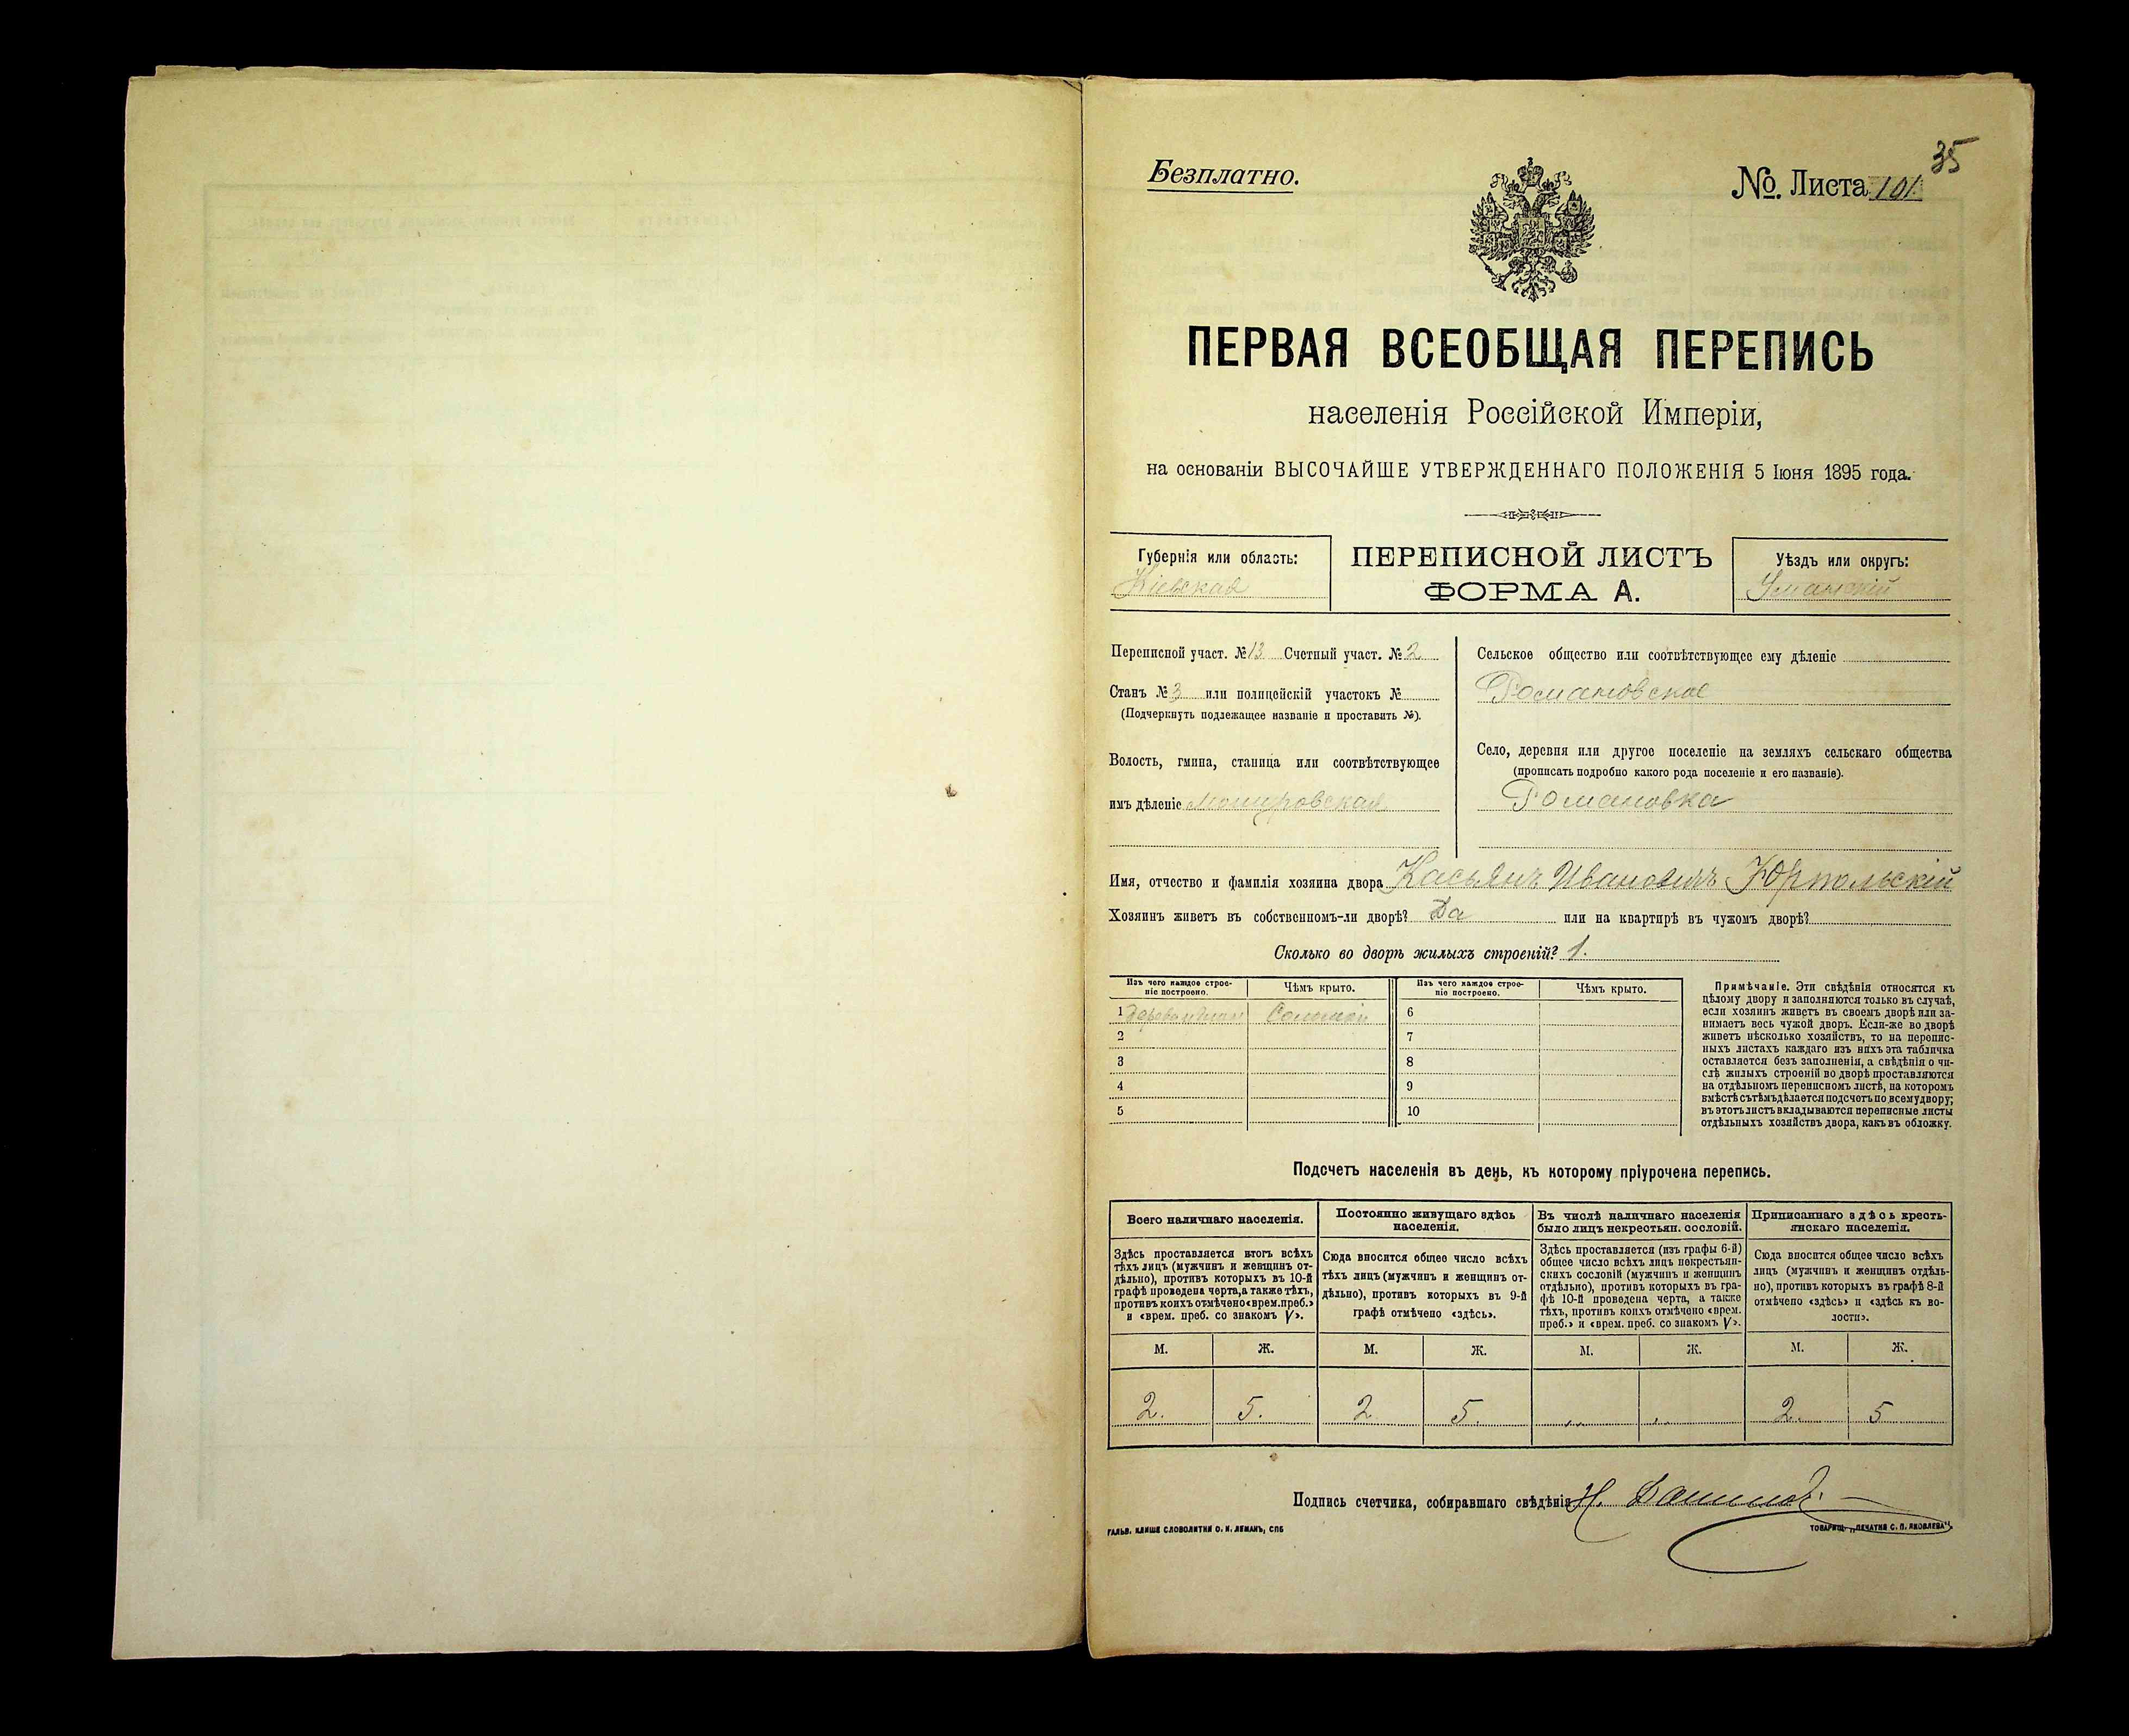 35
Безплатно.
№. Листа 101
ПЕРВАЯ ВСЕОБЩАЯ ПЕРЕПИСЬ
населенія Россійской Имперіи,
на основаніи ВЫСОЧАЙШЕ УТВЕРЖДЕННАГО ПОЛОЖЕНІЯ 5 Іюня 1895 года.
Губернія или область:
Кіевская
ПЕРЕПИСНОЙ ЛИСТЪ
ФОРМА А.
Уѣздъ или округъ:
Уманскій
Переписной участ. № 13 Счетный участ. № 2
Станъ № 3 или полицейскій участокъ №
(Подчеркнуть подлежащее названіе и проставить №).
Волость, гмина, станица или соотвѣтствующее
имъ дѣленіе
Сельское общество или соотвѣтствующее ему дѣленіе
Романовское
Село, деревня или другое поселеніе на земляхъ сельскаго общества
(прописать подробно какого рода поселеніе и его названіе).
Романовка
Имя, отчество и фамилія хозяина двора Касьянъ Ивановичъ Юрпольскій
Хозяинъ живетъ въ собственномъ-ли дворѣ? Да или на квартирѣ въ чужомъ дворѣ?
Сколько во дворѣ жилыхъ строеній? 1.
Изъ чего каждое строе-
ніе построено.
Чѣмъ крыто.
1 Соломой
2
3
4
5
Изъ чего каждое строе-
ніе построено.
Чѣмъ крыто.
6
7
8
9
10
Примѣчаніе. Эти свѣдѣнія относятся къ
цѣлому двору и заполняются только въ случаѣ,
если хозяинъ живетъ въ своемъ дворѣ или за-
нимаетъ весь чужой дворъ. Если-же во дворѣ
живетъ нѣсколько хозяйствъ, то на перепис-
ныхъ листахъ каждаго изъ нихъ эта табличка
оставляется безъ заполненія, а свѣдѣнія о чи-
слѣ жилыхъ строеній во дворѣ проставляются
на отдѣльномъ переписномъ листѣ, на которомъ
вмѣстѣ съ тѣмъ дѣлается подсчетъ по всему двору;
въ этотъ листъ вкладываются переписные листы
отдѣльныхъ хозяйствъ двора, какъ въ обложку.
Подсчетъ населенія въ день, къ которому пріурочена перепись.
Всего наличнаго населенія.
Здѣсь проставляется итогъ всѣхъ
тѣхъ лицъ (мужчинъ и женщинъ от-
дѣльно), противъ которыхъ въ 10-й
графѣ проведена черта, а также тѣхъ,
противъ коихъ отмѣчено «врем. преб.»
и «врем. преб. со знакомъ V».
М. Ж.
2. 5.
Постоянно живущаго здѣсь
населенія.
Сюда вносится общее число всѣхъ
тѣхъ лицъ (мужчинъ и женщинъ от-
дѣльно), противъ которыхъ въ 9-й
графѣ отмѣчено «здѣсь».
М. Ж.
2 5.
Въ числѣ наличнаго населенія
было лицъ некрестьян. сословій.
Здѣсь проставляется (изъ графы 6-й)
общее число всѣхъ лицъ некрестьян-
скихъ сословій (мужчинъ и женщинъ
отдѣльно), противъ которыхъ въ гра-
фѣ 10-й проведена черта, а также
тѣхъ, противъ коихъ отмѣчено «врем.
преб.» и «врем. преб. со знакомъ V».
М. Ж.
Приписаннаго здѣсь кресть-
янскаго населенія.
Сюда вносится общее число всѣхъ
лицъ (мужчинъ и женщинъ отдѣль-
но), противъ которыхъ въ графѣ 8-й
отмѣчено «здѣсь» и «здѣсь къ во-
лости».
М. Ж.
2. 5
Подпись счетчика, собиравшаго свѣдѣнія
ГАЛЬВ. КЛИШЕ СЛОВОЛИТНИ О. И. ЛЕМАНЪ, СПБ
ТОВАРИЩ. „ПЕЧАТНЯ С. П. ЯКОВЛЕВА“.